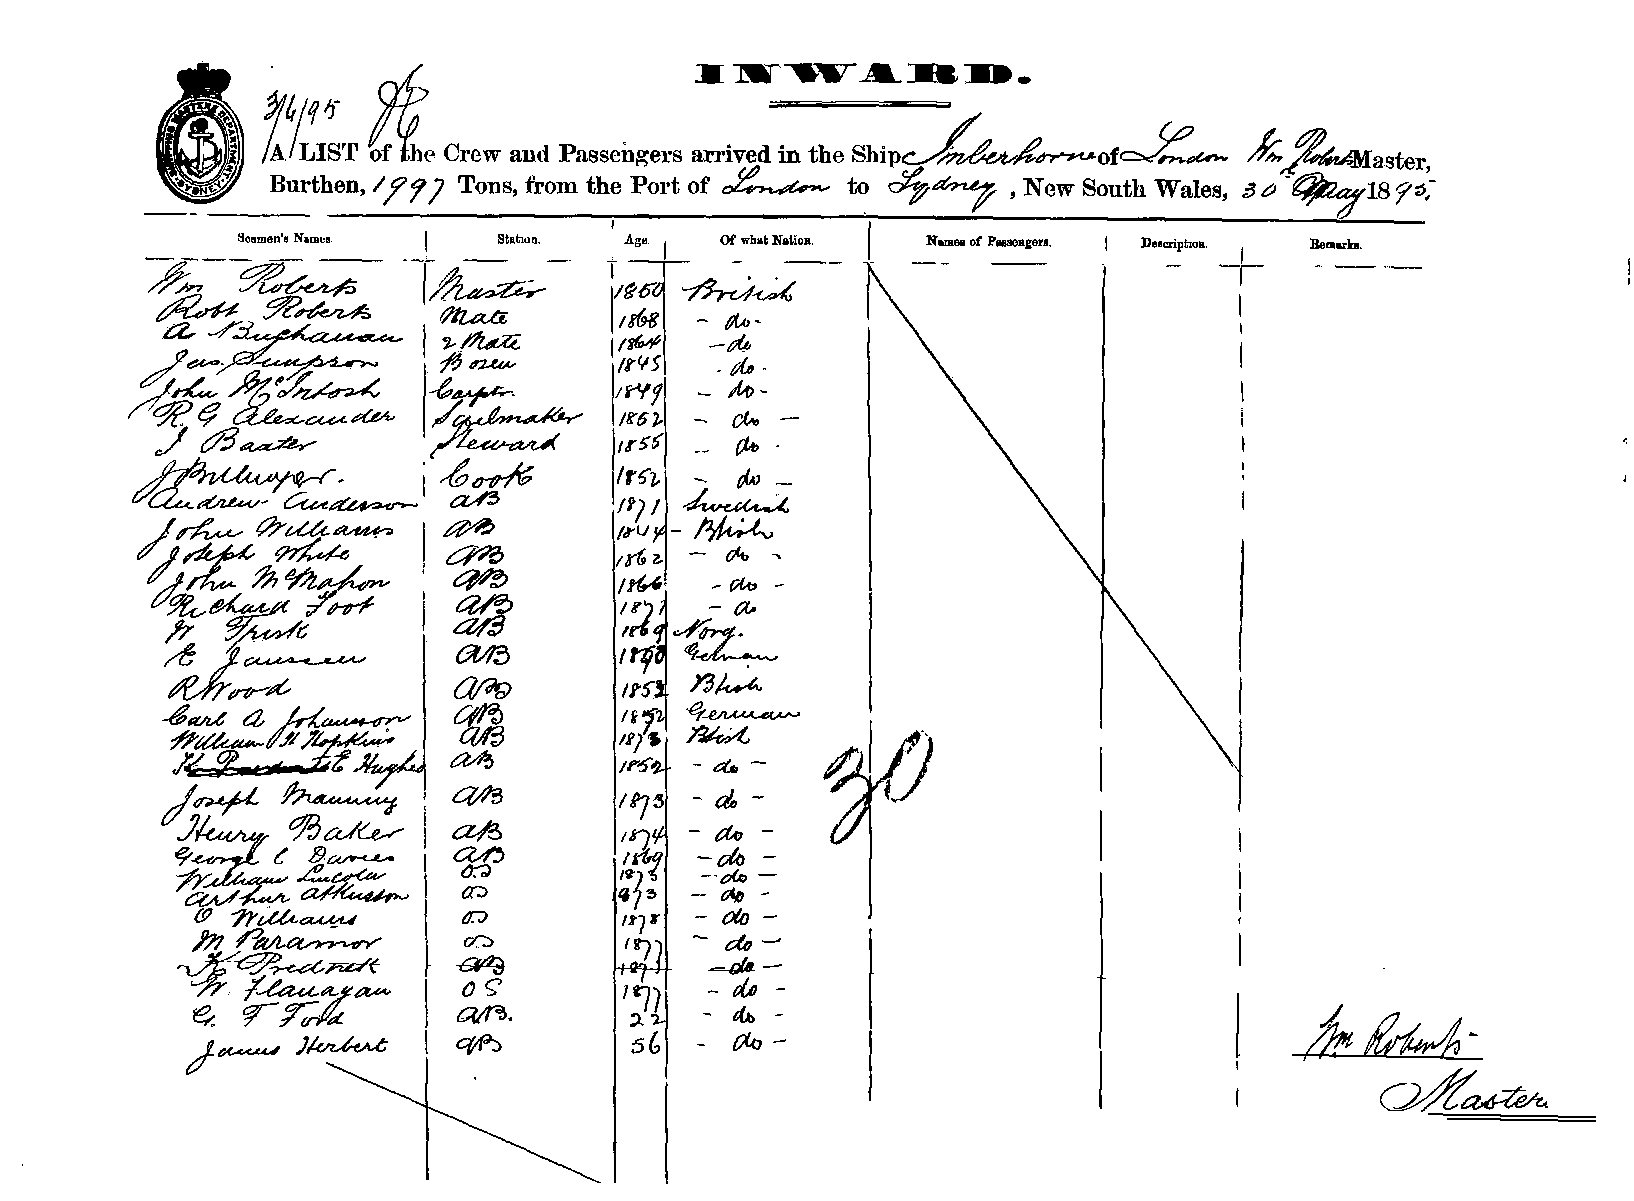 INWARD.
3/6/95
A LIST of the Crew and Passengers arrived in the Ship Imberhorne of London Wm Roberts Master,
Burthen, 1997 Tons, from the Port of London to Sydney, New South Wales, 30 May 1895.
Seamen's Names. Station. Age. Of what Nation. Names of Passengers. Description. Remarks.
Wm Roberts Master 1850 British
Robt Roberts Mate 1868 - do -
A Buchanan 2 Mate 1864 - do
Jas. Simpson Bosn 1845 - do -
John McIntosh Carptr 1849 - do -
R. G Alexander Sailmaker 1852 - do -
J Baxter Steward 1855 - do -
J Cook 1852 - do -
Andrew Anderson AB 1871 Swedish
John Williams AB 1844 - Btish
Joseph White AB 1862 - do -
John McMahon AB 1866 - do -
Richard Foot AB 1871 - do
W Frisk AB 1869 Norg.
E Janssen AB German
R Wood AB 1853 Btish
Carl A Johansson AB 1852 German
William H Hopkins AB 1873 Btish
E Hughes AB 1852 - do -
Joseph Manning AB 1873 - do -
Henry Baker AB 1874 - do -
George C Davies AB 1869 - do -
William Lincoln OS 1873 - do -
Arthur Atkinson OS 1873 - do -
O Williams OS 1878 - do -
M Paramor OS 1877 - do -
K Prednek AB 1871 - do -
W. Flanagan OS 1877 - do -
G. F Ford AB. 22 - do -
James Herbert AB 56 - do -
30
Wm Roberts
Master